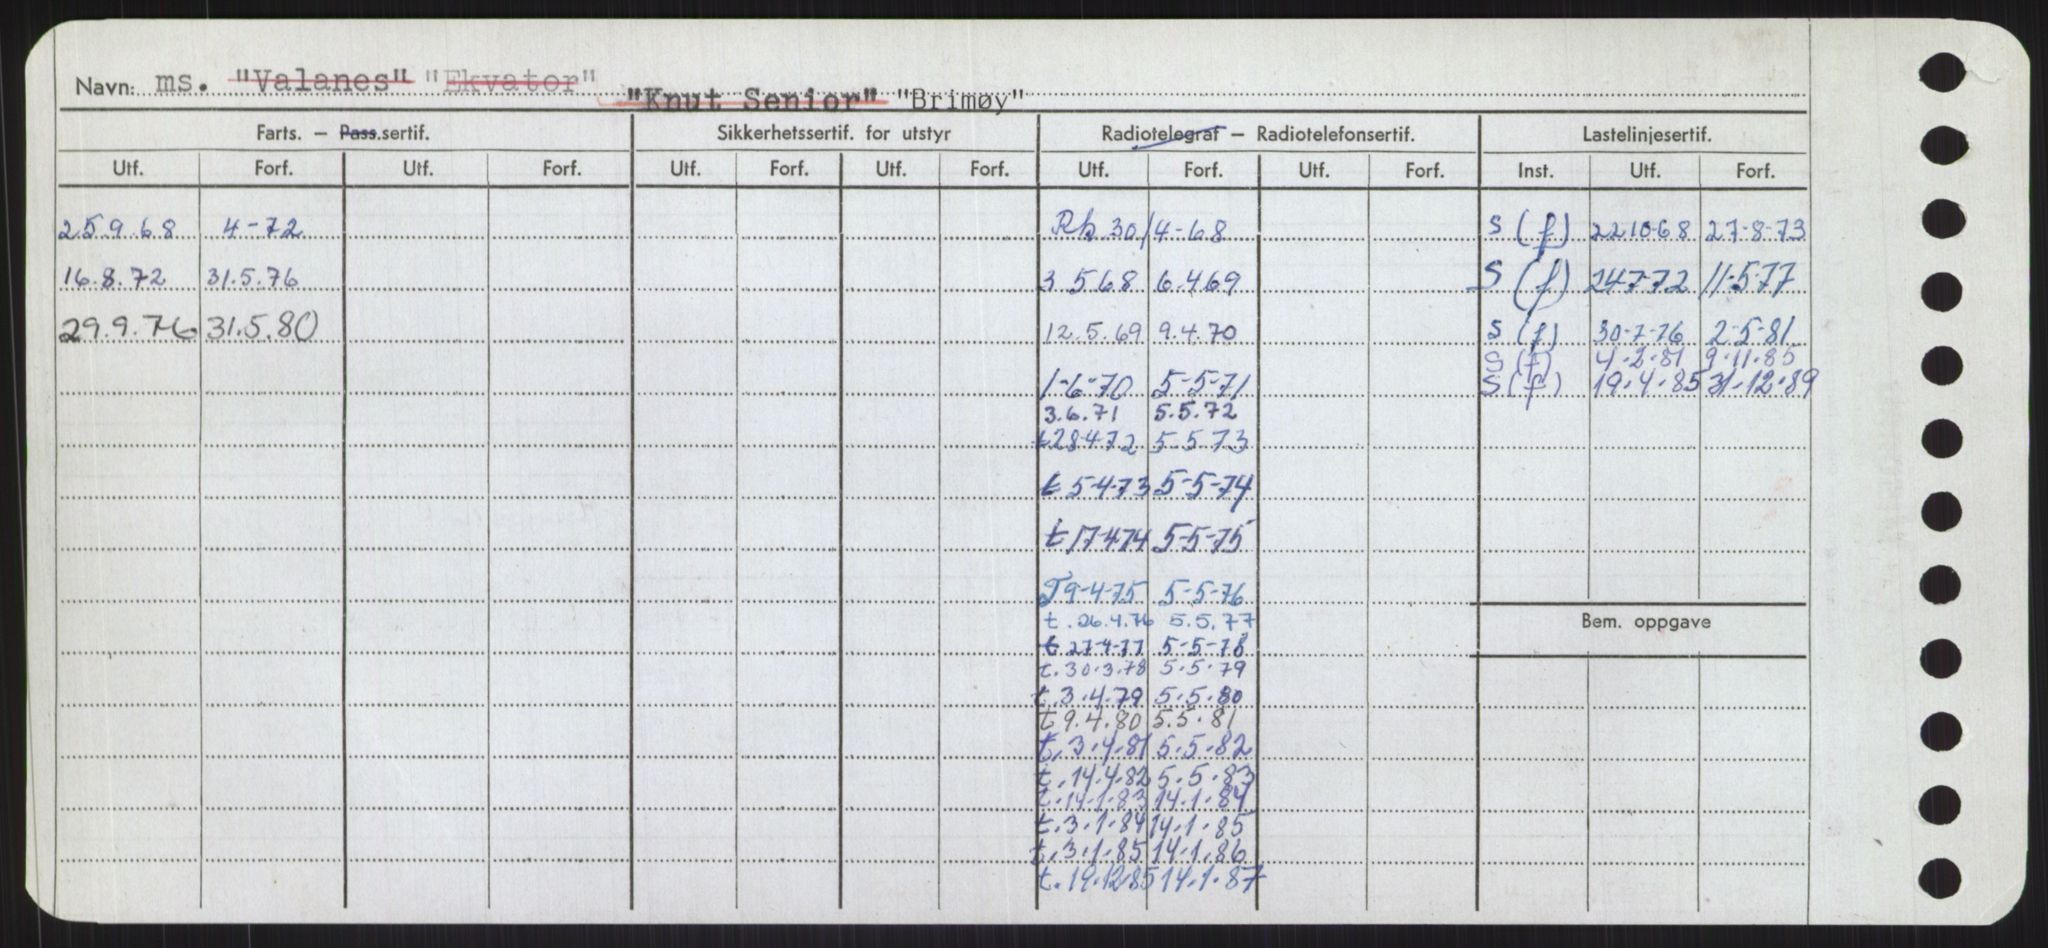 Navn: ms. "Valanes" "Ekvator"
"Knut Senior" "Brimøy"
Farts. – Pass.sertif. Sikkerhetssertif. for utstyr Radiotelegraf – Radiotelefonsertif. Lastelinjesertif.
Utf. Forf. Utf. Forf. Utf. Forf. Utf. Forf. Utf. Forf. Utf. Forf. Inst. Utf. Forf.
25.9.68 4-72 Rk 30/4-68 S (f) 22.10-68 27-8-73
16.8.72 31.5.76 3 5 68 6.4 69 S (f) 24 7 72 11-5-77
29.9.76 31.5.80 12.5.69 9.4.70 S (f) 30-7-76 2-5-81
S (f) 4.2.81 9.11.85
1-6-70 5-5-71 S (f) 19.4.85 31.12.89
3.6.71 5.5.72
t 28 4 72 5.5 73
t 5-4-73 5-5-74
t 17-4-74 5-5-75
T 9-4-75 5-5-76
t. 26.4.76 5.5.77
Bem. oppgave
t 27-4-77 5-5-78
t. 30.3.78 5.5.79
t. 3.4.79 5.5.80
t 9.4.80 5.5.81
t. 3.4.81 5.5.82
t. 14.4.82 5.5.83
t. 14.1.83 14.1.84
t. 3.1.84 14.1.85
t. 3.1.85 14.1.86
t. 19.12.85 14.1.87